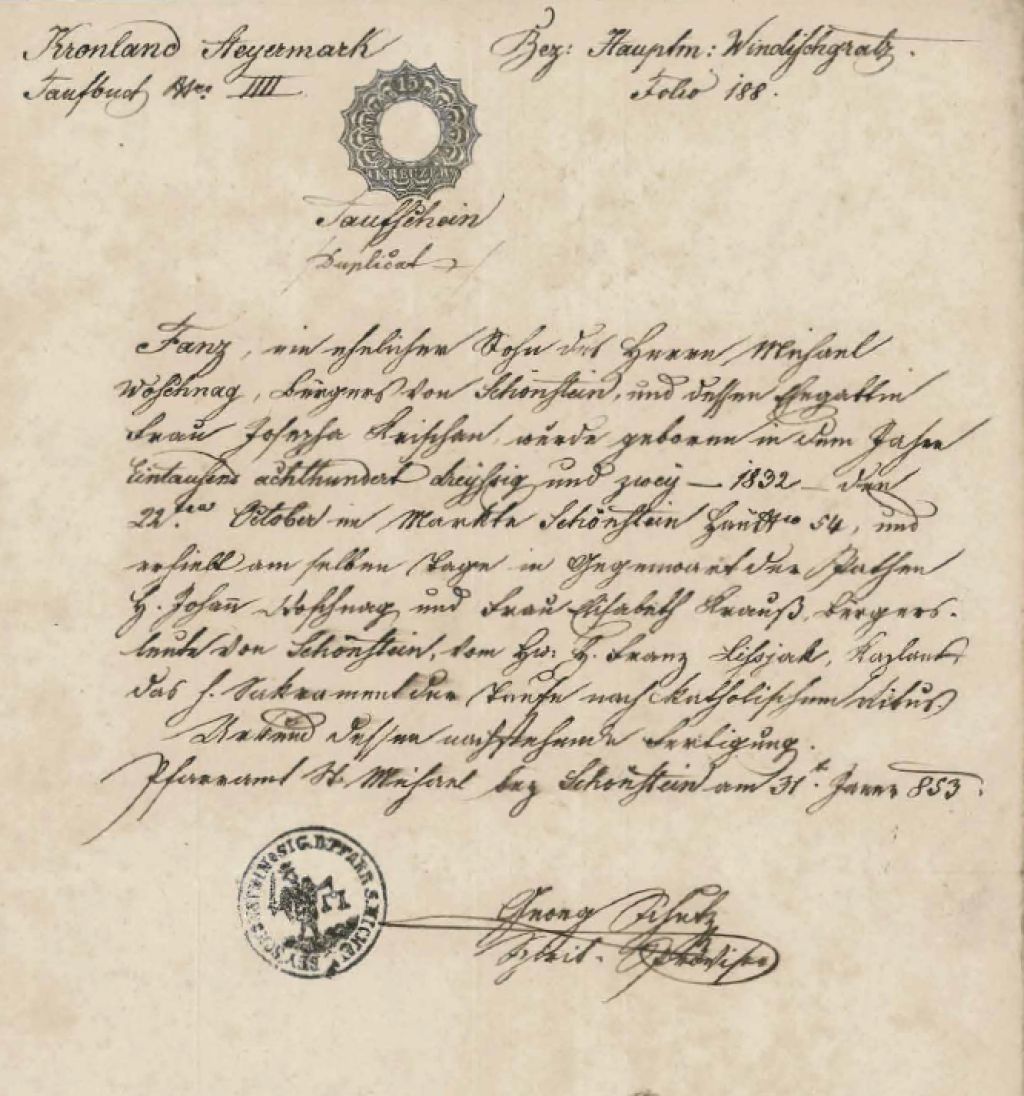 Kronland Steyermark
Bez: Hauptm: Windischgratz.
Taufbuch Nro IIII
Folio 188.
15
KREUZER
Taufschein
Duplicat
Fanz, ein ehelicher Sohn des Herrn Michael
Woschnag, Bürgers von Schönstein, und dessen Ehegattin
Frau Josepha Krischan, wurde geboren in dem Jahre
Eintausend achthundert dreyssig und zwey – 1832 – den
22ten October im Markte Schönstein HausNro 54, und
erhielt am selben Tage in Gegenwart der Pathen
H. Johann Woschnag und Frau Elisabeth Krauß, Bürgers-
leute von Schönstein, vom Hw: H. Franz Lissjak, Kaplan
das h. Sakrament der Taufe nach katholischem Ritus.
Urkund dessen nachstehende Fertigung.
Pfarramt St. Michael bey Schönstein am 31t. Jänner 853.
SIG. D. PFARR S. MICHAEL BEY SCHÖNSTEIN
Georg Schutz
Provisor